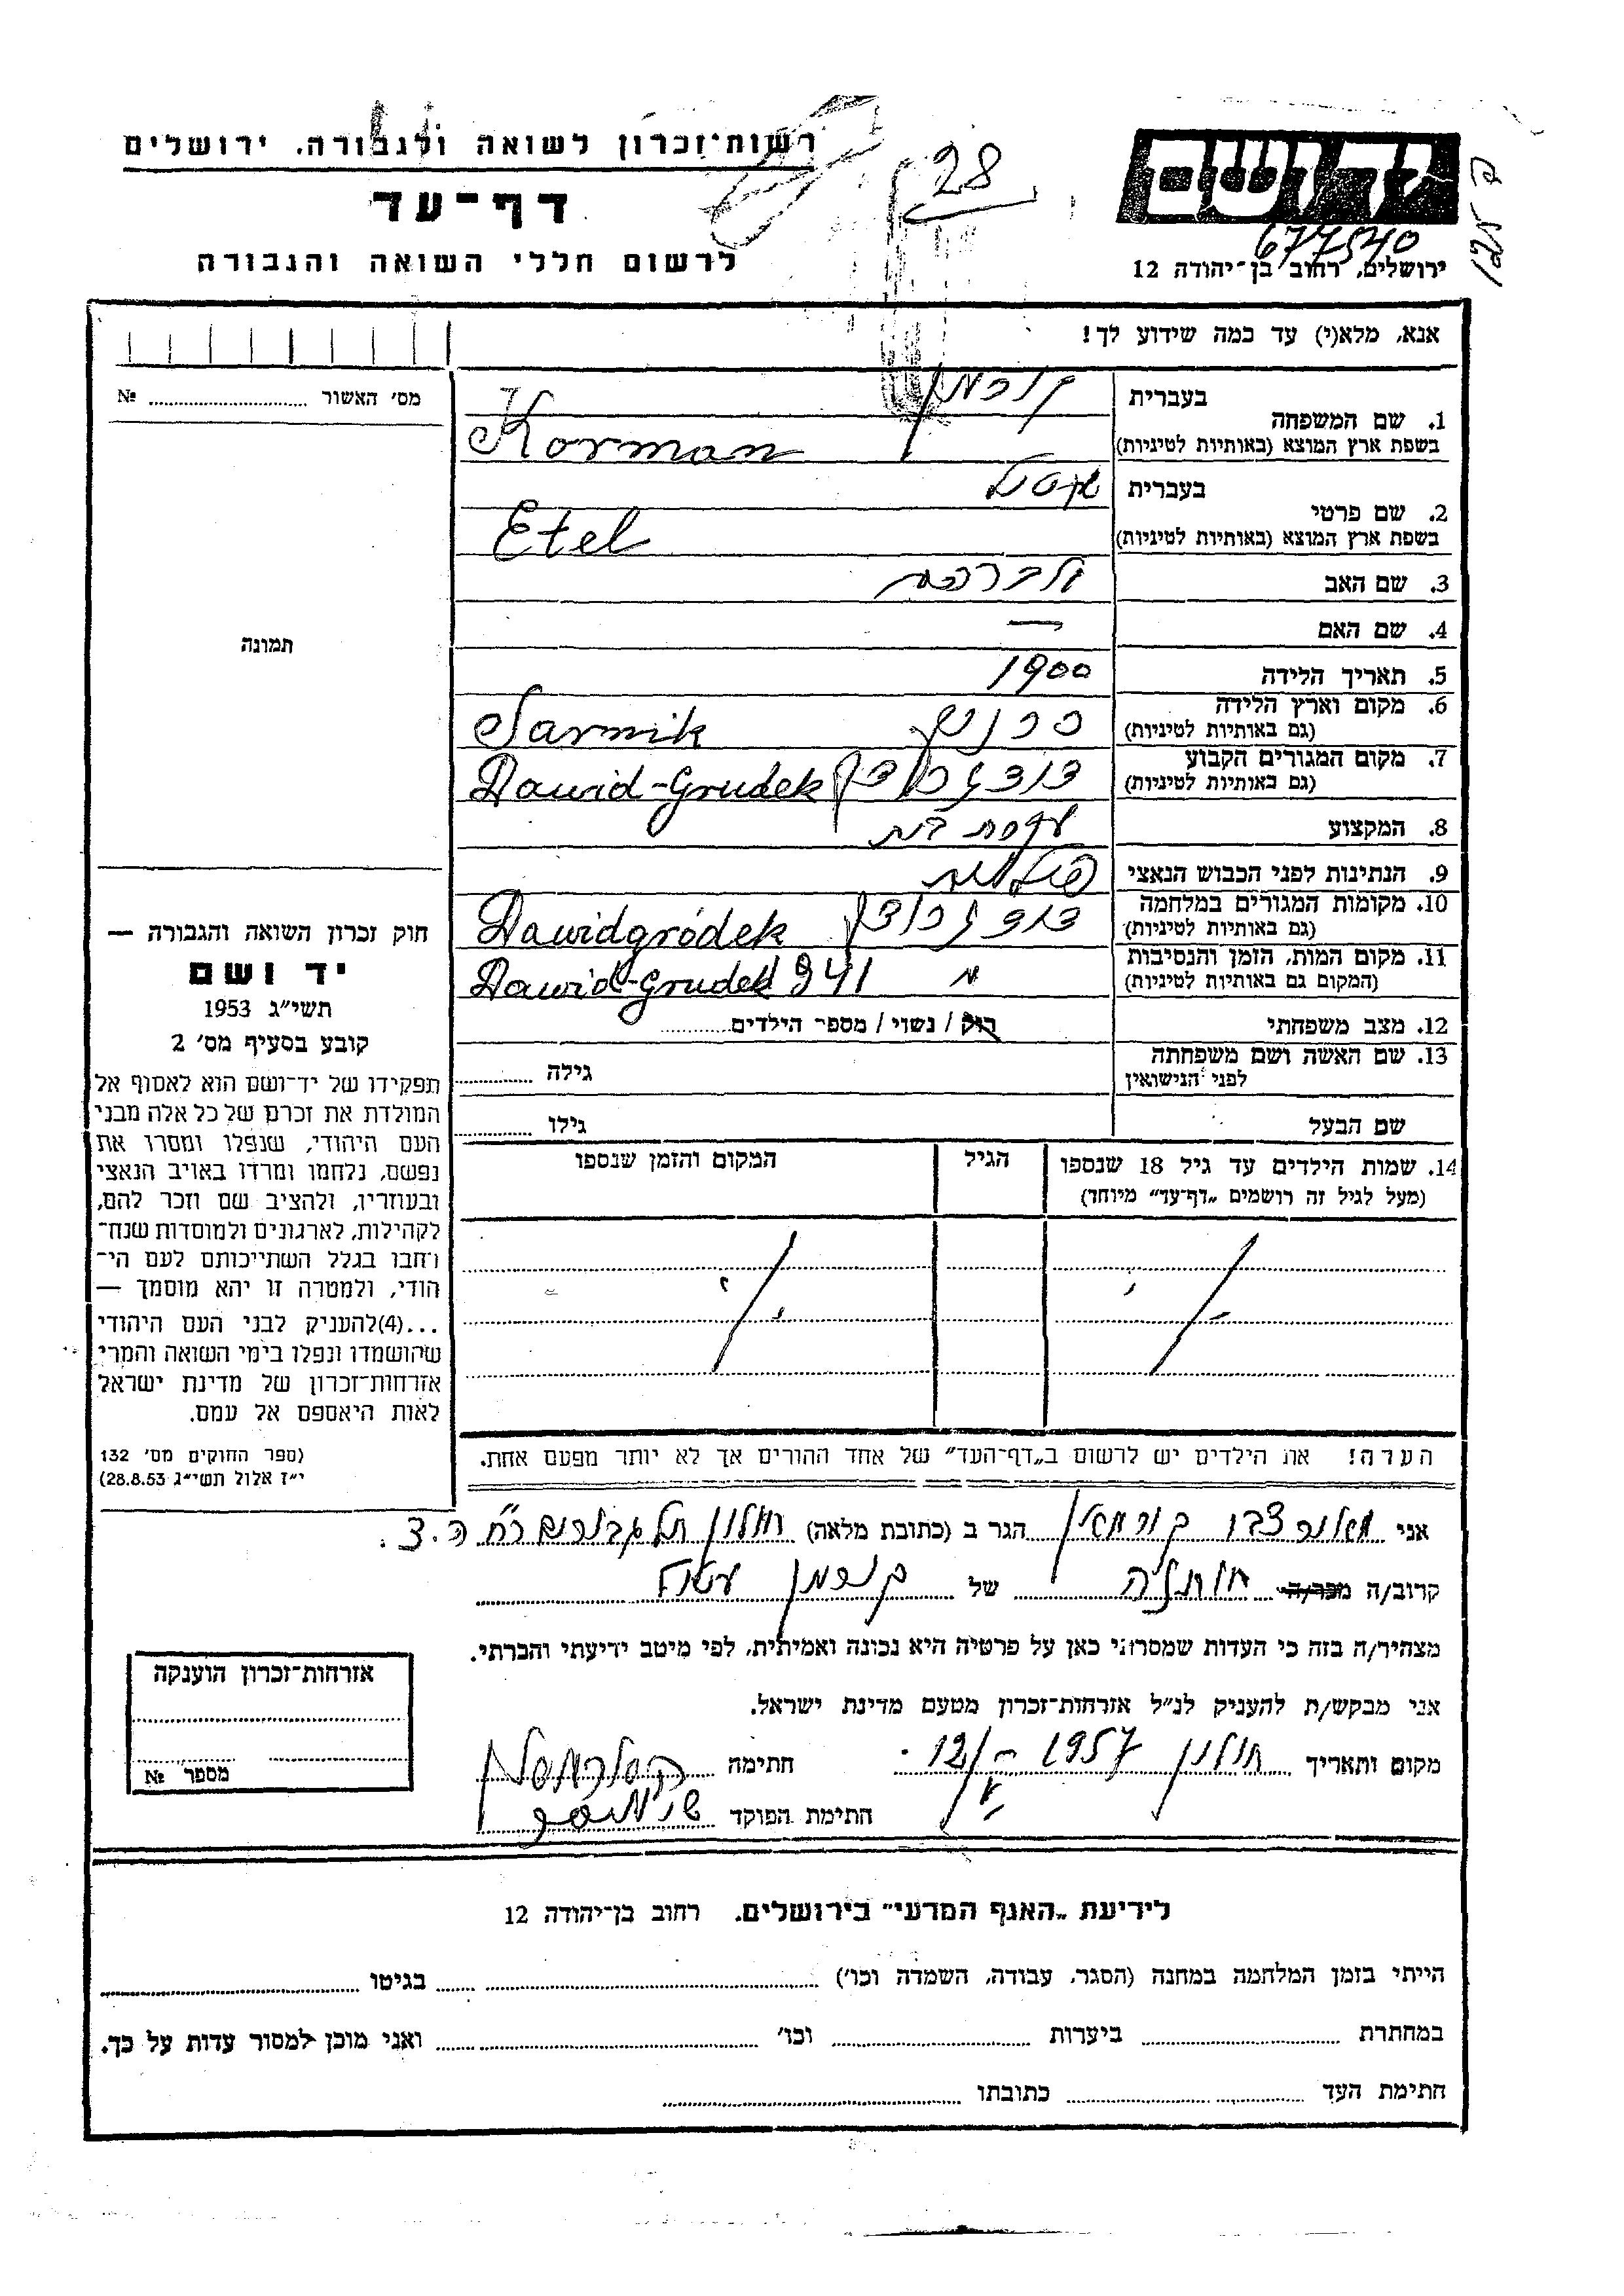 רשות־זכרון לשואה ולגבורה, ירושלים
דף־עד
לרשום חללי השואה והגבורה
28
יד ושם
677540
ירושלים, רחוב בן־יהודה 12
אנא, מלא(י) עד כמה שידוע לך!
מס' האשור № 
תמונה
1. שם המשפחה
בעברית קורמן
בשפת ארץ המוצא (באותיות לטיניות) Korman
2. שם פרטי
בעברית אטל
בשפת ארץ המוצא (באותיות לטיניות) Etel
3. שם האב
4. שם האם —
5. תאריך הלידה 1900
6. מקום וארץ הלידה
(גם באותיות לטיניות) סרניק Sarnik
7. מקום המגורים הקבוע
(גם באותיות לטיניות) דודגרודק Dawid-Grudek
8. המקצוע עקרת בית
9. הנתינות לפני הכבוש הנאצי פולנית
10. מקומות המגורים במלחמה
(גם באותיות לטיניות) דודגרודק Dawidgródek
11. מקום המות, הזמן והנסיבות
(המקום גם באותיות לטיניות) Dawid-Grudek 941
12. מצב משפחתי רוק / נשוי / מספר הילדים
13. שם האשה ושם משפחתה
לפני הנישואין גילה
שם הבעל גילו
14. שמות הילדים עד גיל 18 שנספו
(מעל לגיל זה רושמים „דף־עד” מיוחד)
הגיל
המקום והזמן שנספו
הערה! את הילדים יש לרשום ב„דף־העד” של אחד ההורים אך לא יותר מפעם אחת.
חוק זכרון השואה והגבורה —
יד ושם
תשי״ג 1953
קובע בסעיף מס' 2
תפקידו של יד־ושם הוא לאסוף אל
המולדת את זכרם של כל אלה מבני
העם היהודי, שנפלו ומסרו את
נפשם, נלחמו ומרדו באויב הנאצי
ובעוזריו, ולהציב שם וזכר להם,
לקהילות, לארגונים ולמוסדות שנח־
רחבו בגלל השתייכותם לעם הי־
הודי, ולמטרה זו יהא מוסמך —
...(4)להעניק לבני העם היהודי
שהושמדו ונפלו בימי השואה והמרי
אזרחות־זכרון של מדינת ישראל
לאות היאספם אל עמם.
(ספר החוקים מס' 132
י״ז אלול תשי״ג 28.8.53)
אני קורמאן הגר ב (כתובת מלאה) חולון תל גבורים
קרוב/ה מכר/ה של קורמן
מצהיר/ה בזה כי העדות שמסרתי כאן על פרטיה היא נכונה ואמיתית, לפי מיטב ידיעתי והכרתי.
אני מבקש/ת להעניק לנ״ל אזרחות־זכרון מטעם מדינת ישראל.
מקום ותאריך חולון 1957 חתימה
חתימת הפוקד
אזרחות־זכרון הוענקה
מספר №
לידיעת „האגף המדעי” בירושלים. רחוב בן־יהודה 12
הייתי בזמן המלחמה במחנה (הסגר, עבודה, השמדה וכו') בגיטו
במחתרת ביערות וכו' ואני מוכן למסור עדות על כך.
חתימת העד כתובתו